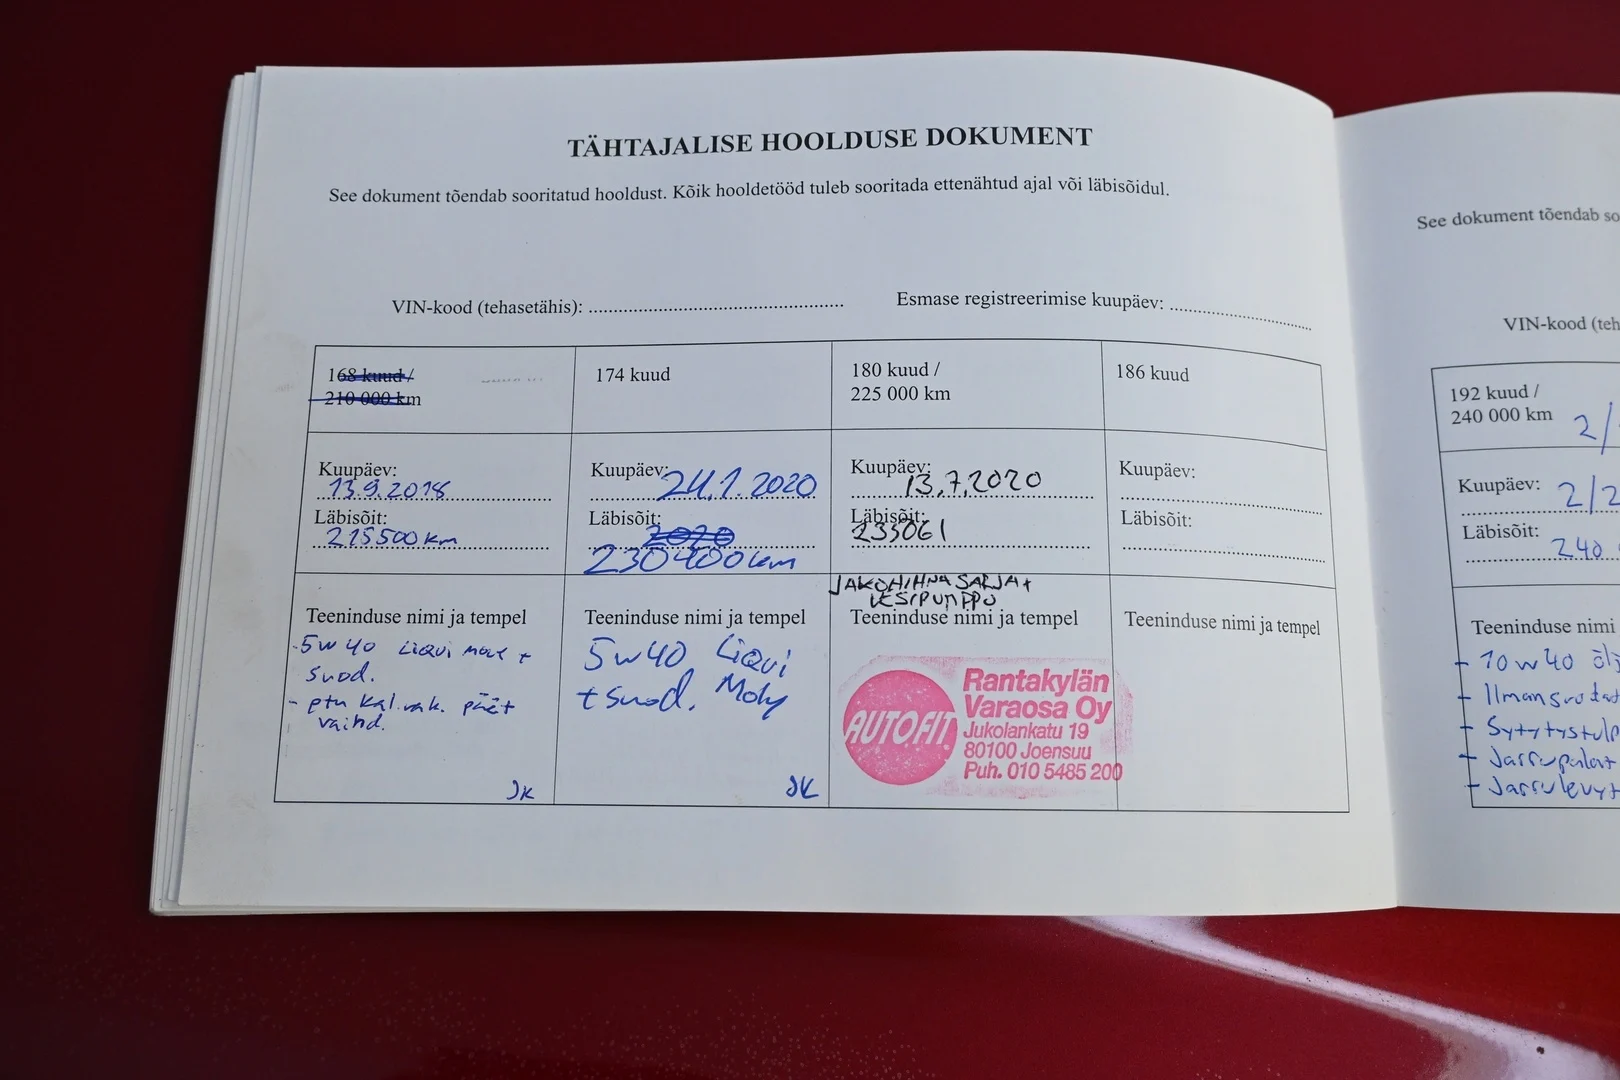 TÄHTAJALISE HOOLDUSE DOKUMENT
See dokument tõendab sooritatud hooldust. Kõik hooldetööd tuleb sooritada ettenähtud ajal või läbisõidul.
VIN-kood (tehasetähis):
Esmase registreerimise kuupäev:
168 kuud /
210 000 km
Kuupäev:
13.9.2018
Läbisõit:
215500 km
Teeninduse nimi ja tempel
-5w40 Liqui +
suod.
- ptn kal.vak. päät
vaihd.
JK
174 kuud
Kuupäev:
24.1.2020
Läbisõit:
2020
230400 km
Teeninduse nimi ja tempel
5w40 Liqui
+ suod. Moly
JK
180 kuud /
225 000 km
Kuupäev:
13.7.2020
Läbisõit:
235061
JAKOHIHNASARJA +
VESIPUMPPU
Teeninduse nimi ja tempel
AUTOFIT
Rantakylän
Varaosa Oy
Jukolankatu 19
80100 Joensuu
Puh. 010 5485 200
186 kuud
Kuupäev:
Läbisõit:
Teeninduse nimi ja tempel
See dokument tõendab so
VIN-kood (teh
192 kuud /
240 000 km
2/
Kuupäev:
2/2
Läbisõit:
240
Teeninduse nimi
- 10w40 ölj
- Ilmansuodat
- Sytytystulp
- Jarrupalat
- Jarrulevyt